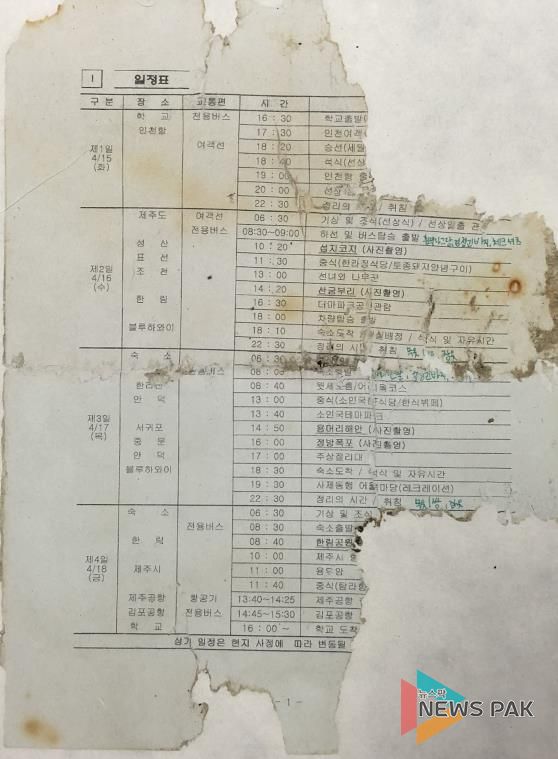 I 일정표
구 분 장 소 교통편 시 간
제1일 4/15 (화)
학 교 전용버스 16 : 30 학교출발(
인천항 17 : 30 인천여객
여객선 18 : 20 승선(세월
18 : 40 석식(선상
19 : 00 인천항 출
20 : 00 선상
22 : 30 정리의 / 취침
제2일 4/16 (수)
제주도 여객선 06 : 30 기상 및 조식(선상식) / 선상일출 관
전용버스 08:30~09:00 하선 및 버스탑승 출발
성 산 10 : 20 섭지코지 (사진촬영)
표 선 11 : 30 중식(한라정식당/토종돼지양념구이)
조 천 13 : 00 선녀와 나무꾼
14 : 20 산굼부리 (사진촬영)
한 림 16 : 30 더마파크공연관람
18 : 00 차량탑승 출발
블루하와이 18 : 10 숙소도착 / 실배정 / 석식 및 자유시간
22 : 30 정리의 시간 / 취침
제3일 4/17 (목)
숙 소 06 : 30
08 : 00 숙소출발
한라산 08 : 40 윗세오름/어리목코스
안 덕 13 : 00 중식(소인국 식당/한식뷔페)
13 : 40 소인국테마파크
서귀포 14 : 50 용머리해안 (사진촬영)
중 문 16 : 00 정방폭포 (사진촬영)
안 덕 17 : 00 주상절리대
블루하와이 18 : 30 숙소도착 / 석식 및 자유시간
19 : 30 사제동행 어울 마당(레크레이션)
22 : 30 정리의 시간 / 취침
제4일 4/18 (금)
숙 소 06 : 30 기상 및 조식
전용버스 08 : 30 숙소출발
한 림 08 : 40 한림공원
10 : 00 제주시
제주시 11 : 00 용두암
11 : 40 중식(탐라
제주공항 항공기 13:40~14:25 제주공항
김포공항 전용버스 14:45~15:30 김포공항
학 교 16 : 00 ~ 학교 도착
상기 일정은 현지 사정에 따라 변동될
- 1 -
뉴스팍
NEWS PAK